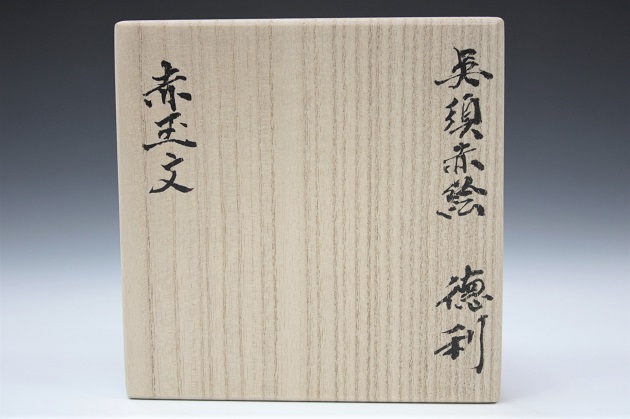 呉須赤絵　徳利
赤玉文